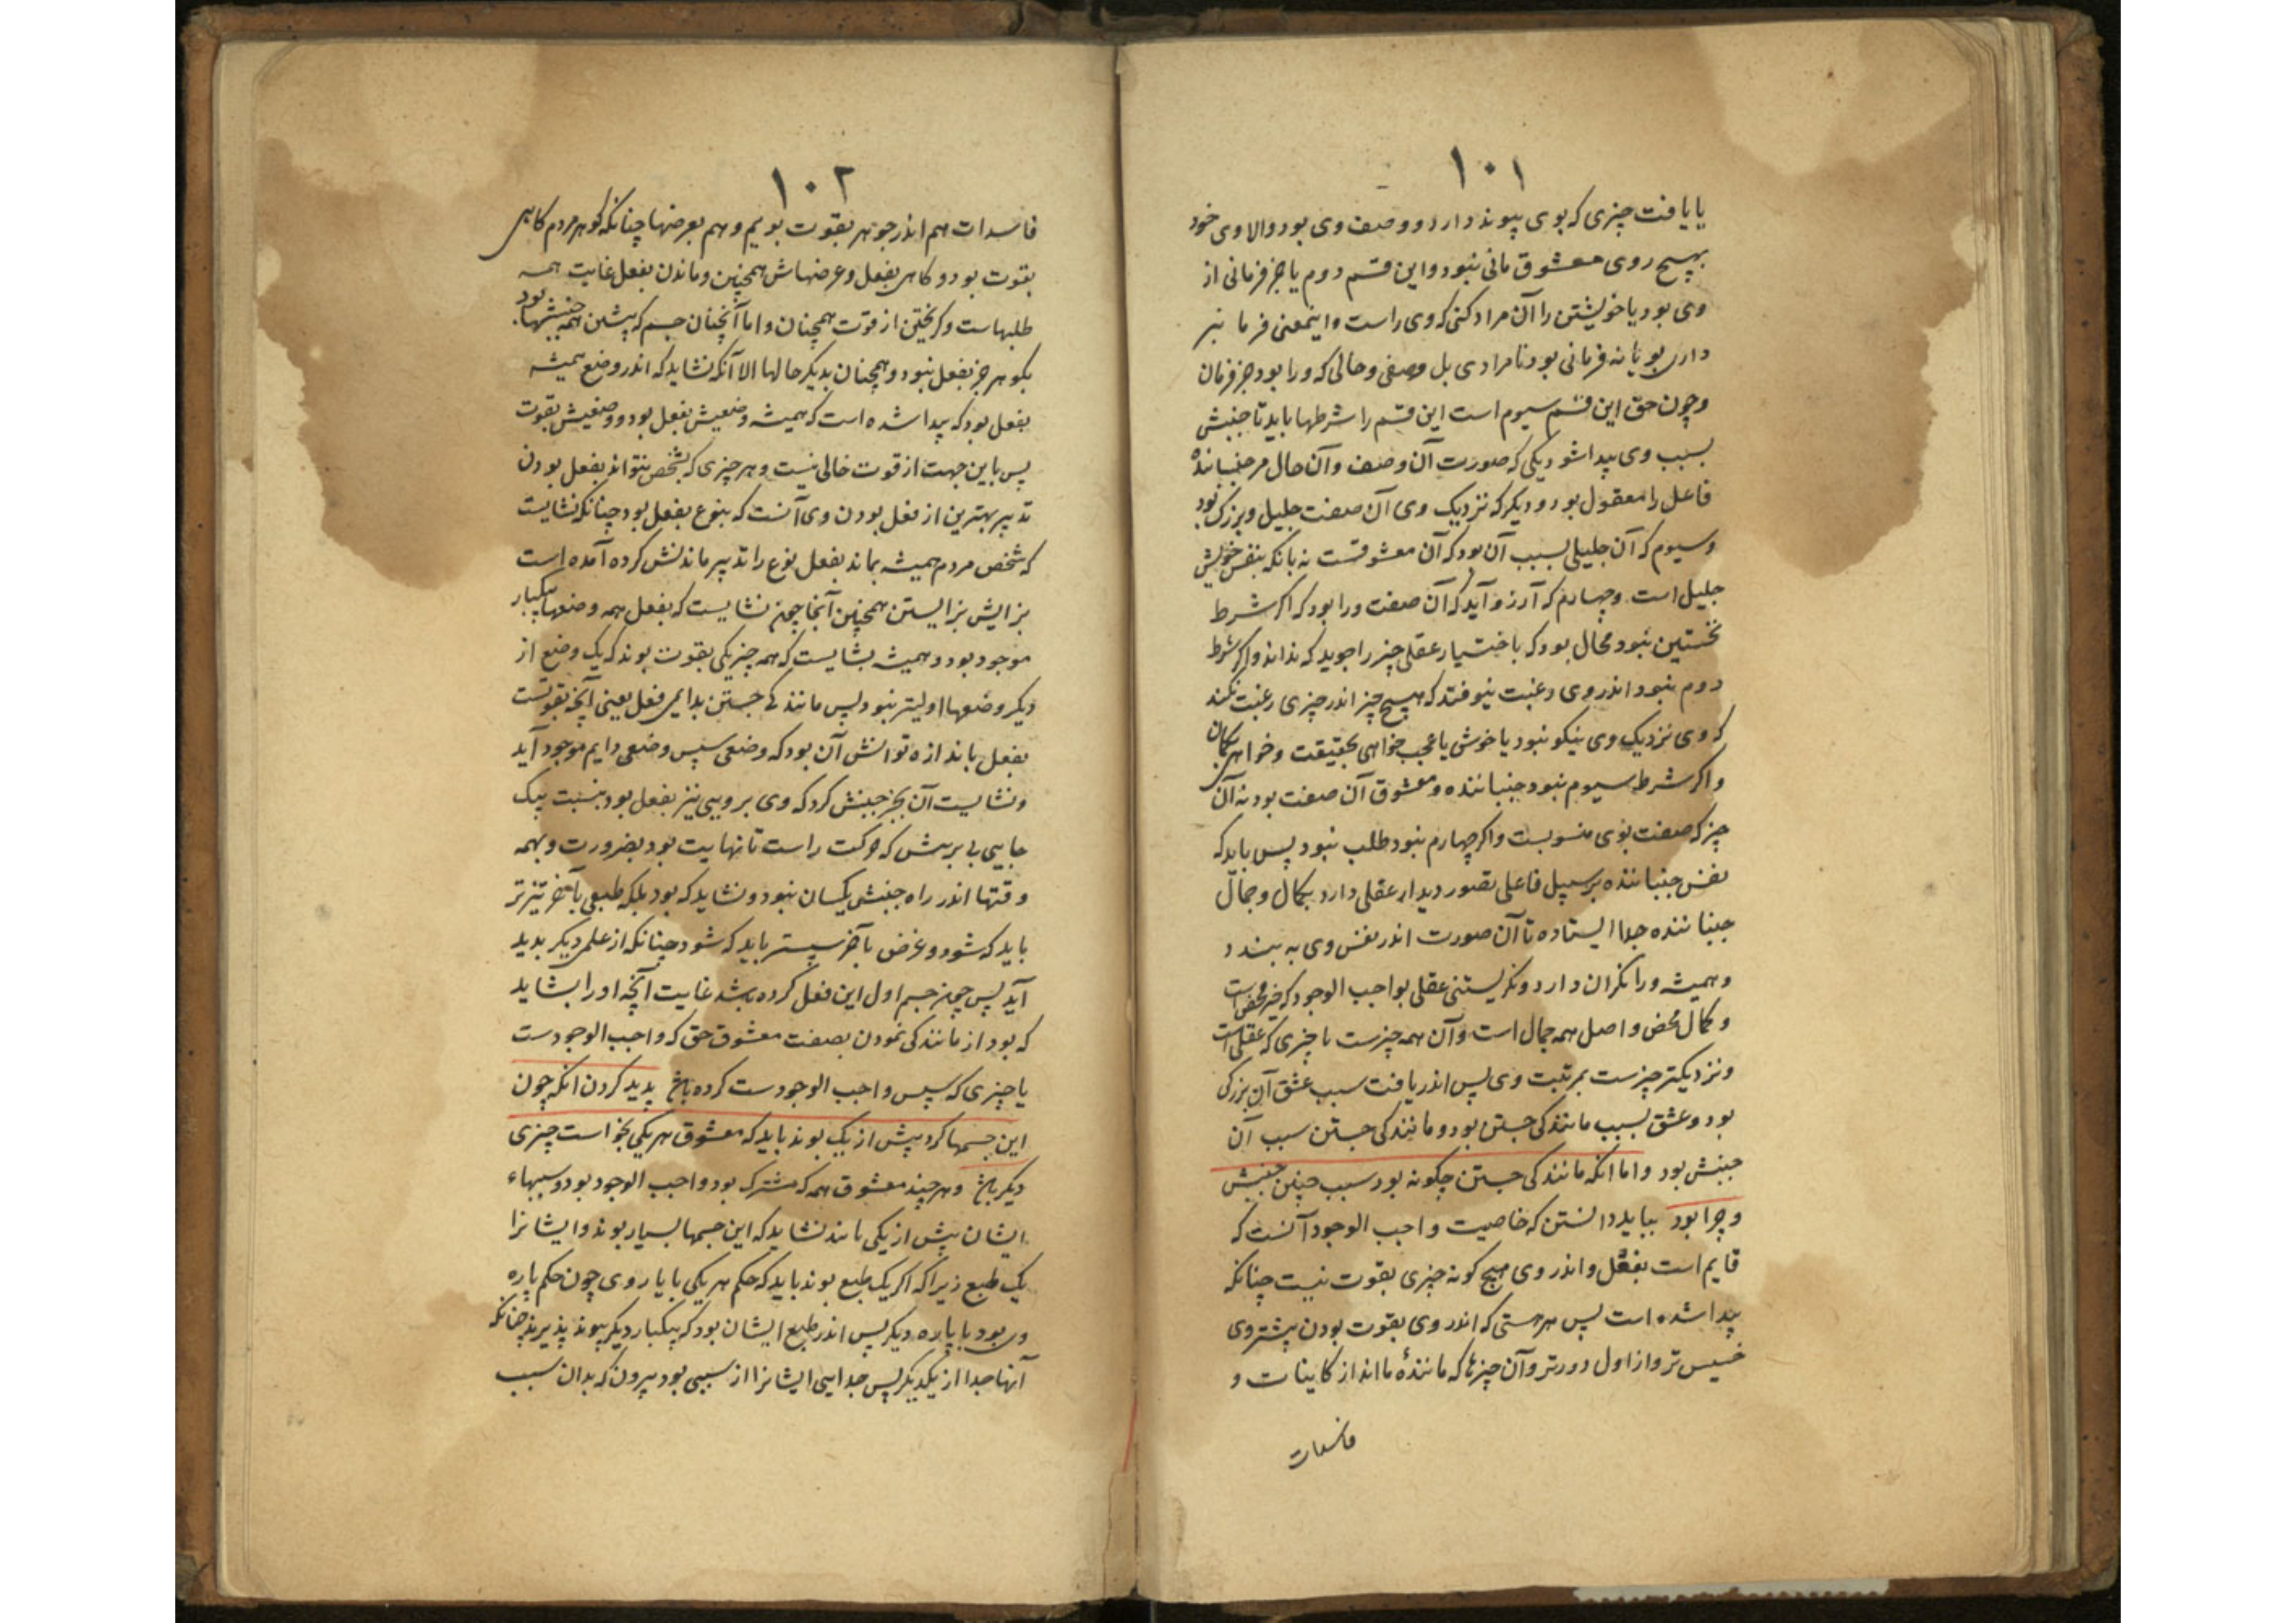 ١٠١
یا یافت چیزی که بوی پیوند دارد و وصف وی بود والا وی خود
بهیچ روی معشوق مانی نبود و این قسم دوم یا جز فرمانی از
وی بود یا خویشتن را آن مراد کنی که وی راست و اینمعنی فرما نبر
داری بود یا نه فرمانی بود نا مرادی بل وصفی و حالی که ورا بود جز فرمان
و چون حق این قسم سیوم است این قسم را شرطها باید تا جنبش
بسبب وی پیدا شود یکی که صورت آن وصف و آن حال مر جنباننده
فاعل را معقول بود و دیگر که نزدیک وی آن صفت جلیل و بزرگ بود
و سیوم که آن جلیلی بسبب آن بود که آن معشوقست نه بانکه بنفس خویش
جلیل است و چهارم که آرزو آید که آن صفت ورا بود که اگر شرط
نخستین نبود محال بود که باختیار عقلی چیز را جوید که نداند و اگر شرط
دوم نبود اندر وی رغبت نیوفتد که هیچ چیز اندر چیزی رغبت نکند
که وی نزدیک وی نیکو نبود یا خوش یا عجب خواهی بحقیقت و خواهی بگمان
و اگر شرط سیوم نبود جنباننده و معشوق آن صفت بود نه آن
چیز که صفت بوی منسوبست و اگر چهارم نبود طلب نبود پس باید که
نفس جنباننده بر سبیل فاعلی تصور دیدار عقلی دارد بکمال و جمال
جنباننده جدا ایستاده تا آن صورت اندر نفس وی به بندد
و همیشه ورا نگران دارد و نگریستنی عقلی بواجب الوجود که خیر محض است
و کمال محض و اصل همه جمال است و آن همه چیزست یا چیزی که عقلی است
و نزدیکتر چیزست بمرتبت وی پس اندر یافت سبب عشق آن بزرگی
بود و عشق بسبب مانندگی جستن بود و مانندگی جستن سبب آن
جنبش بود و اما انکه مانندگی جستن چگونه بود سبب چنین جنبش
و چرا بود بباید دانستن که خاصیت واجب الوجود آنست که
قایم است بفعل و اندر وی هیچ گونه چیزی بقوت نیست چنانکه
پیدا شده است پس هر هستی که اندر وی بقوت بودن بیشتر وی
خسیس تر و از اول دورتر و آن چیزها که مانندهٔ ما اند از کاینات و
فاسدات
١٠٢
فاسدات هم اندر جوهر بقوت بویم و هم بعرضها چنانکه گوهر مردم گاهی
بقوت بود و گاهی بفعل و عرضهاش همچنین و ماندن بفعل غایت همه
طلبهاست و گریختن از قوت همچنان و اما آنچنان جسم که پیشین همه جنبشها بود
بگوهر جز بفعل نبود و همچنان بدیگر حالها الا آنکه نشاید که اندر وضع همیشه
بفعل بود که پیدا شده است که همیشه وضعیش بفعل بود و وضعیش بقوت
پس باین جهت از قوت خالی نیست و هر چیزی که بشخص نتواند بفعل بودن
تدبیر بهترین از فعل بودن وی آنست که بنوع بفعل بود چنانکه نشایست
که شخص مردم همیشه بماند بفعل نوع را تدبیر ماندنش کرده آمده است
بزایش بزایستن همچنین آنجا چون نشایست که بفعل همه وضعها بیکبار
موجود بود و همیشه بشایست که همه چیز یکی بقوت بوند که یک وضع از
دیگر وضعها اولیتر نبود پس مانندگی جستن بدایمی فعل یعنی آنچه بقوتست
بفعل باندازه توانش آن بود که وضعی سپس وضعی دایم موجود آید
و نشایست آن بجز جنبش گرد که وی بر ویی نیز بفعل بود بنسبت بیک
جایی بی برش که حرکت راست تا نهایت بود بضرورت و بهمه
وقتها اندر راه جنبش یکسان نبود و نشاید که بود بلکه طبعی بآخر تیزتر
باید که شود و عرضی بآخر سستر باید که شود چنانکه از علمی دیگر بدید
آید پس چون جسم اول این فعل کرده باشد غایت آنچه او را بشاید
که بود از مانندگی نمودن بصفت معشوق حق که واجب الوجودست
یا چیزی که سپس واجب الوجودست کرده باشد پدید کردن انکه چون
این جسمها گرد بیش از یک بوند باید که معشوق هر یکی بخواست چیزی
دیگر باشد و هر چند معشوق همه که مشترک بود واجب الوجود بود و سببهاء
ایشان بیش از یکی باشد نشاید که این جسمها بسیار بوند و ایشانرا
یک طبع زیرا که اگر یک طبع بوند باید که حکم هر یکی با یار وی چون حکم پاره
وی بود با پاره دیگر پس اندر طبع ایشان بود که بیکبار دیگر پیوند پذیرند چنانکه
آنها جدا از یکدیگر پس جدایی ایشانرا از سببی بود بیرون که بدان سبب